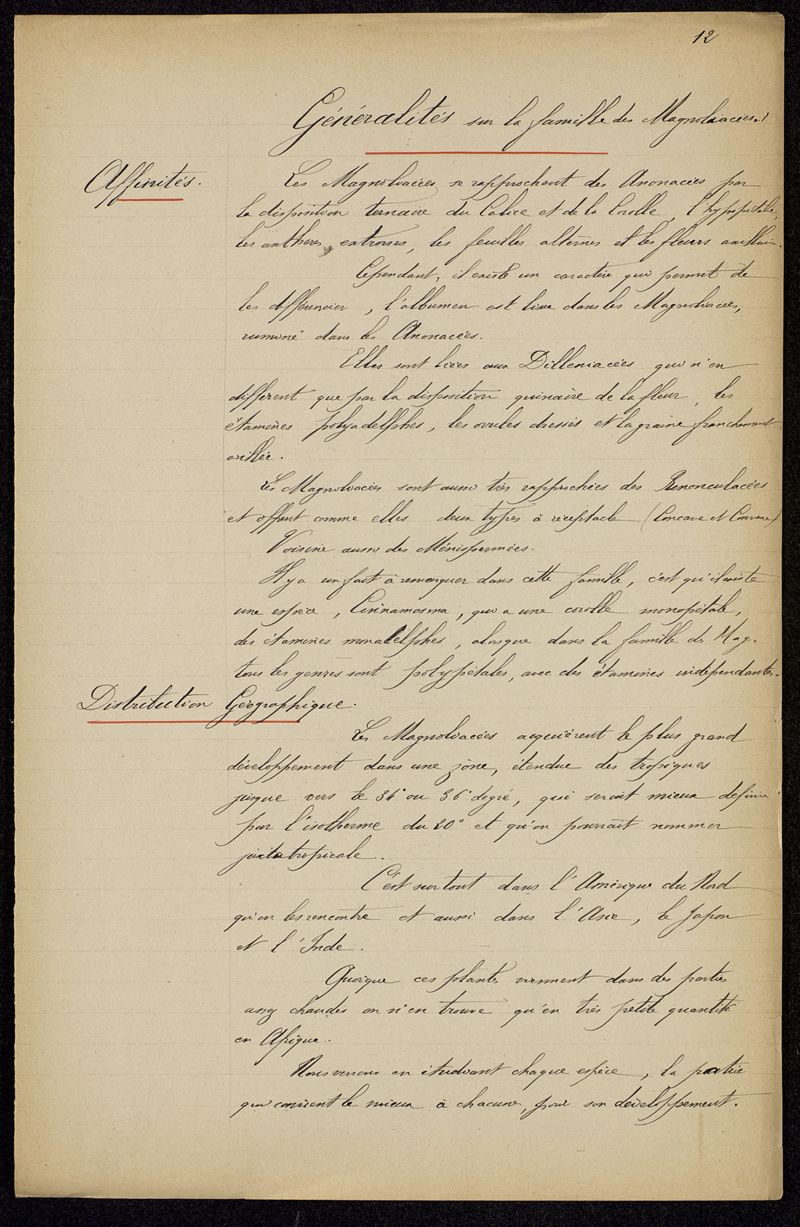 12
Généralités sur la famille des Magnoliacées.
Affinités.
Les Magnoliacées se rapprochent des Anonacées par
la disposition ternaire du Calice et de la Corolle, l'hypopétalie,
les anthères extrorses, les feuilles alternes et les fleurs axillaires.
Cependant, il existe un caractère qui permet de
les différencier, l'albumen est lisse dans les Magnoliacées,
ruminé dans les Anonacées.
Elles sont liées aux Dilleniacées qui n'en
diffèrent que par la disposition quinaire de la fleur, les
étamines polyadelphes, les ovules dressés et la graine franchement
arillée.
Les Magnoliacées sont aussi très rapprochées des Renonculacées
et offrent comme elles deux types à réceptacle (Concave et Convexe)
Voisine aussi des Ménispermées.
Il y a un fait à remarquer dans cette famille, c'est qu'il existe
une espèce, Cinnamosma, qui a une corolle monopétale,
des étamines monadelphes, alorsque dans la famille des Mag.
tous les genres sont polypétales, avec des étamines indépendantes.
Distribution Géographique.
Les Magnoliacées acquièrent le plus grand
développement dans une zône, étendue des tropiques
jusque vers le 34° ou 36° degré, qui serait mieux définie
par l'isotherme du 20° et qu'on pourrait nommer
juxtatropicale.
C'est surtout dans l'Amérique du Nord
qu'on les rencontre et aussi dans l'Asie, le Japon
et l'Inde.
Quoique ces plantes viennent dans des parties
assez chaudes on n'en trouve qu'en très petite quantité
en Afrique.
Nous verrons en étudiant chaque espèce, la partie
qui convient le mieux à chacune, pour son développement.